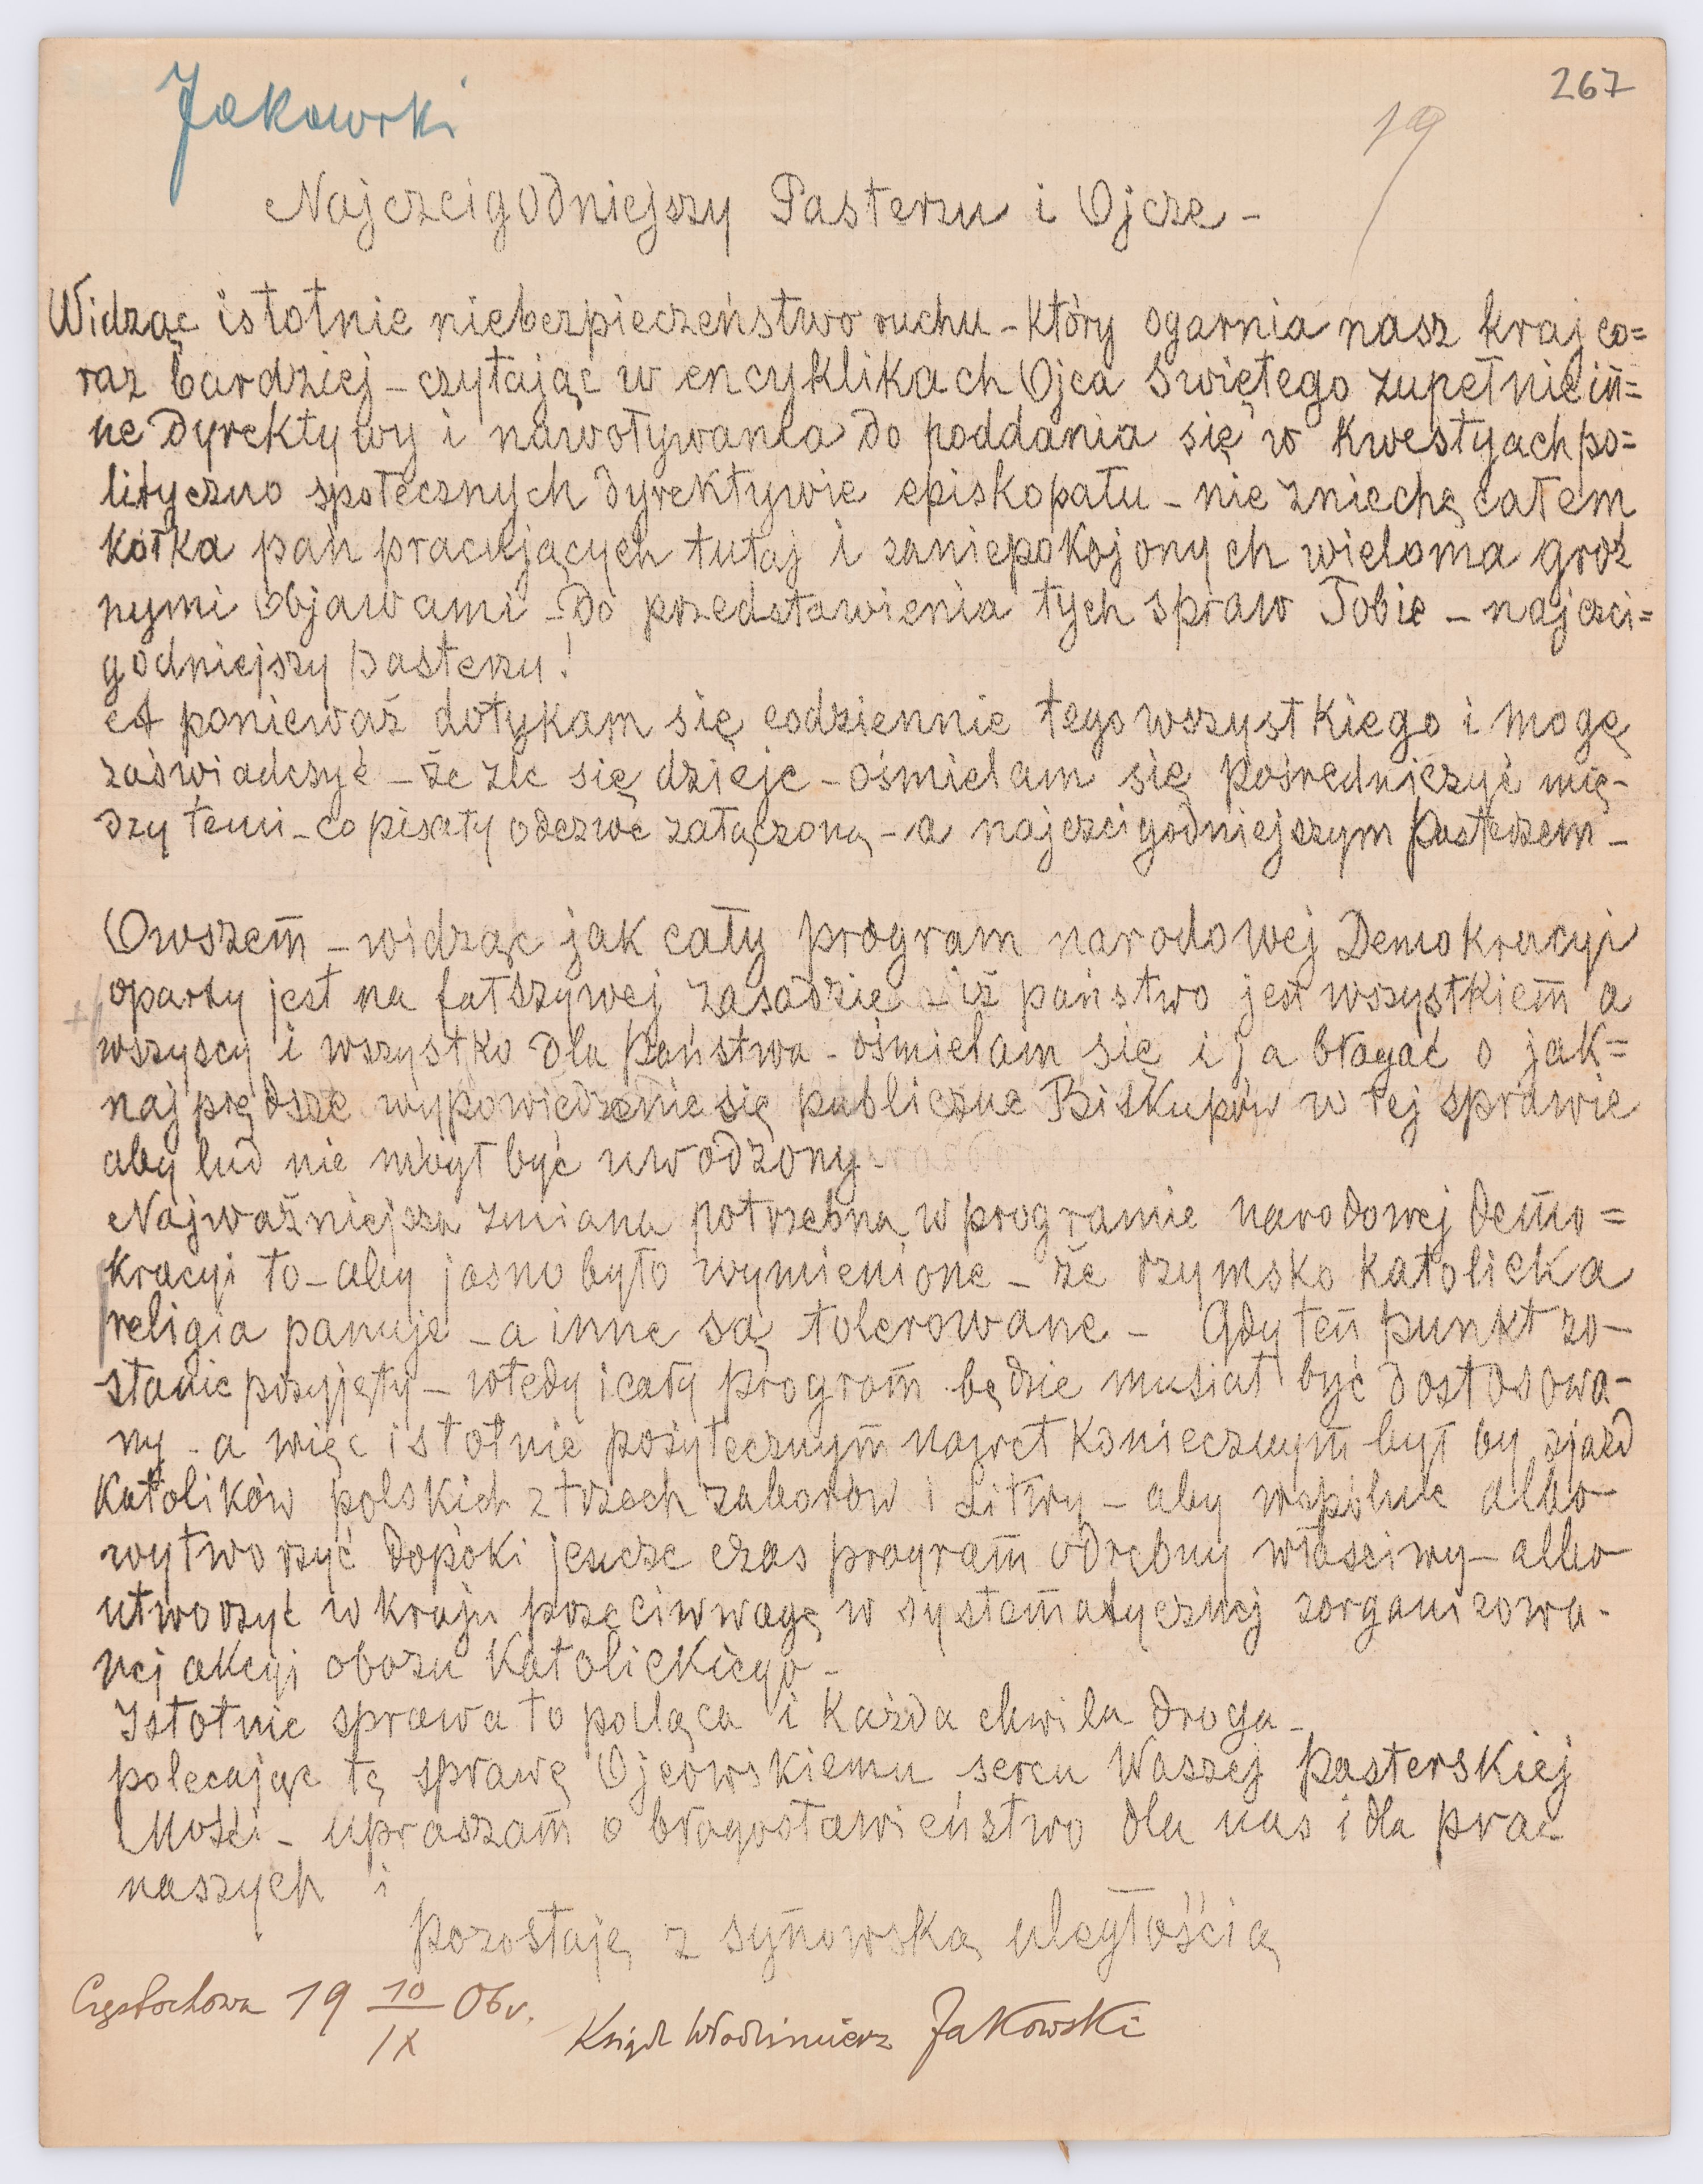 267
Jakowski
19
Najczcigodniejszy Pasterzu i Ojcze –
Widząc istotnie niebezpieczeństwo ruchu – który ogarnia nasz kraj co=
raz bardziej – czytając w encyklikach Ojca Świętego zupełnie in=
ne dyrektywy i nawoływania do poddania się w kwestyach po=
lityczno społecznych dyrektywie episkopatu – nie zniechęcałem
kółka pań pracujących tutaj i zaniepokojonych wieloma groź
nymi objawami – do przedstawienia tych spraw Tobie – najczci=
godniejszy pasterzu!
A ponieważ dotykam się codziennie tego wszystkiego i mogę
zaświadczyć – że źle się dzieje – ośmielam się pośredniczyć mię–
dzy temi – co pisały odezwę załączoną – a najczcigodniejszym Pasterzem –
Owszem – widząc jak cały program narodowej Demokracyi
oparty jest na fałszywej zasadzie iż państwo jest wszystkiem a
wszyscy i wszystko dla Państwa – ośmielam się i ja błagać o jak=
najprędsze wypowiedzenie się publiczne Biskupów w tej sprawie
aby lud nie mógł być uwodzony
Najważniejsza zmiana potrzebna w programie narodowej demo=
kracyi to – aby jasno było wymienione – że rzymsko katolicka
religia panuje – a inne są tolerowane – Gdy ten punkt zo–
stanie przyjęty – wtedy i cały program będzie musiał być dostosowa–
ny – a więc istotnie pożytecznym nawet koniecznym był by zjazd
Katolików polskich z trzech zaborów i Litwy – aby wspólnie albo
wytworzyć dopóki jeszcze czas program odrębny właściwy – albo
utworzyć w kraju przeciwwagę w systematycznej zorganizowa–
nej akcyi obozu Katolickiego –
Istotnie sprawa to paląca i każda chwila droga –
polecając tę sprawę Ojcowskiemu sercu Waszej pasterskiej
Mości – upraszam o błogosławieństwo dla nas i dla prac
naszych i
pozostaję z synowską uległością
Częstochowa 19 10/IX 06 r.
Ksiądz Włodzimierz Jakowski